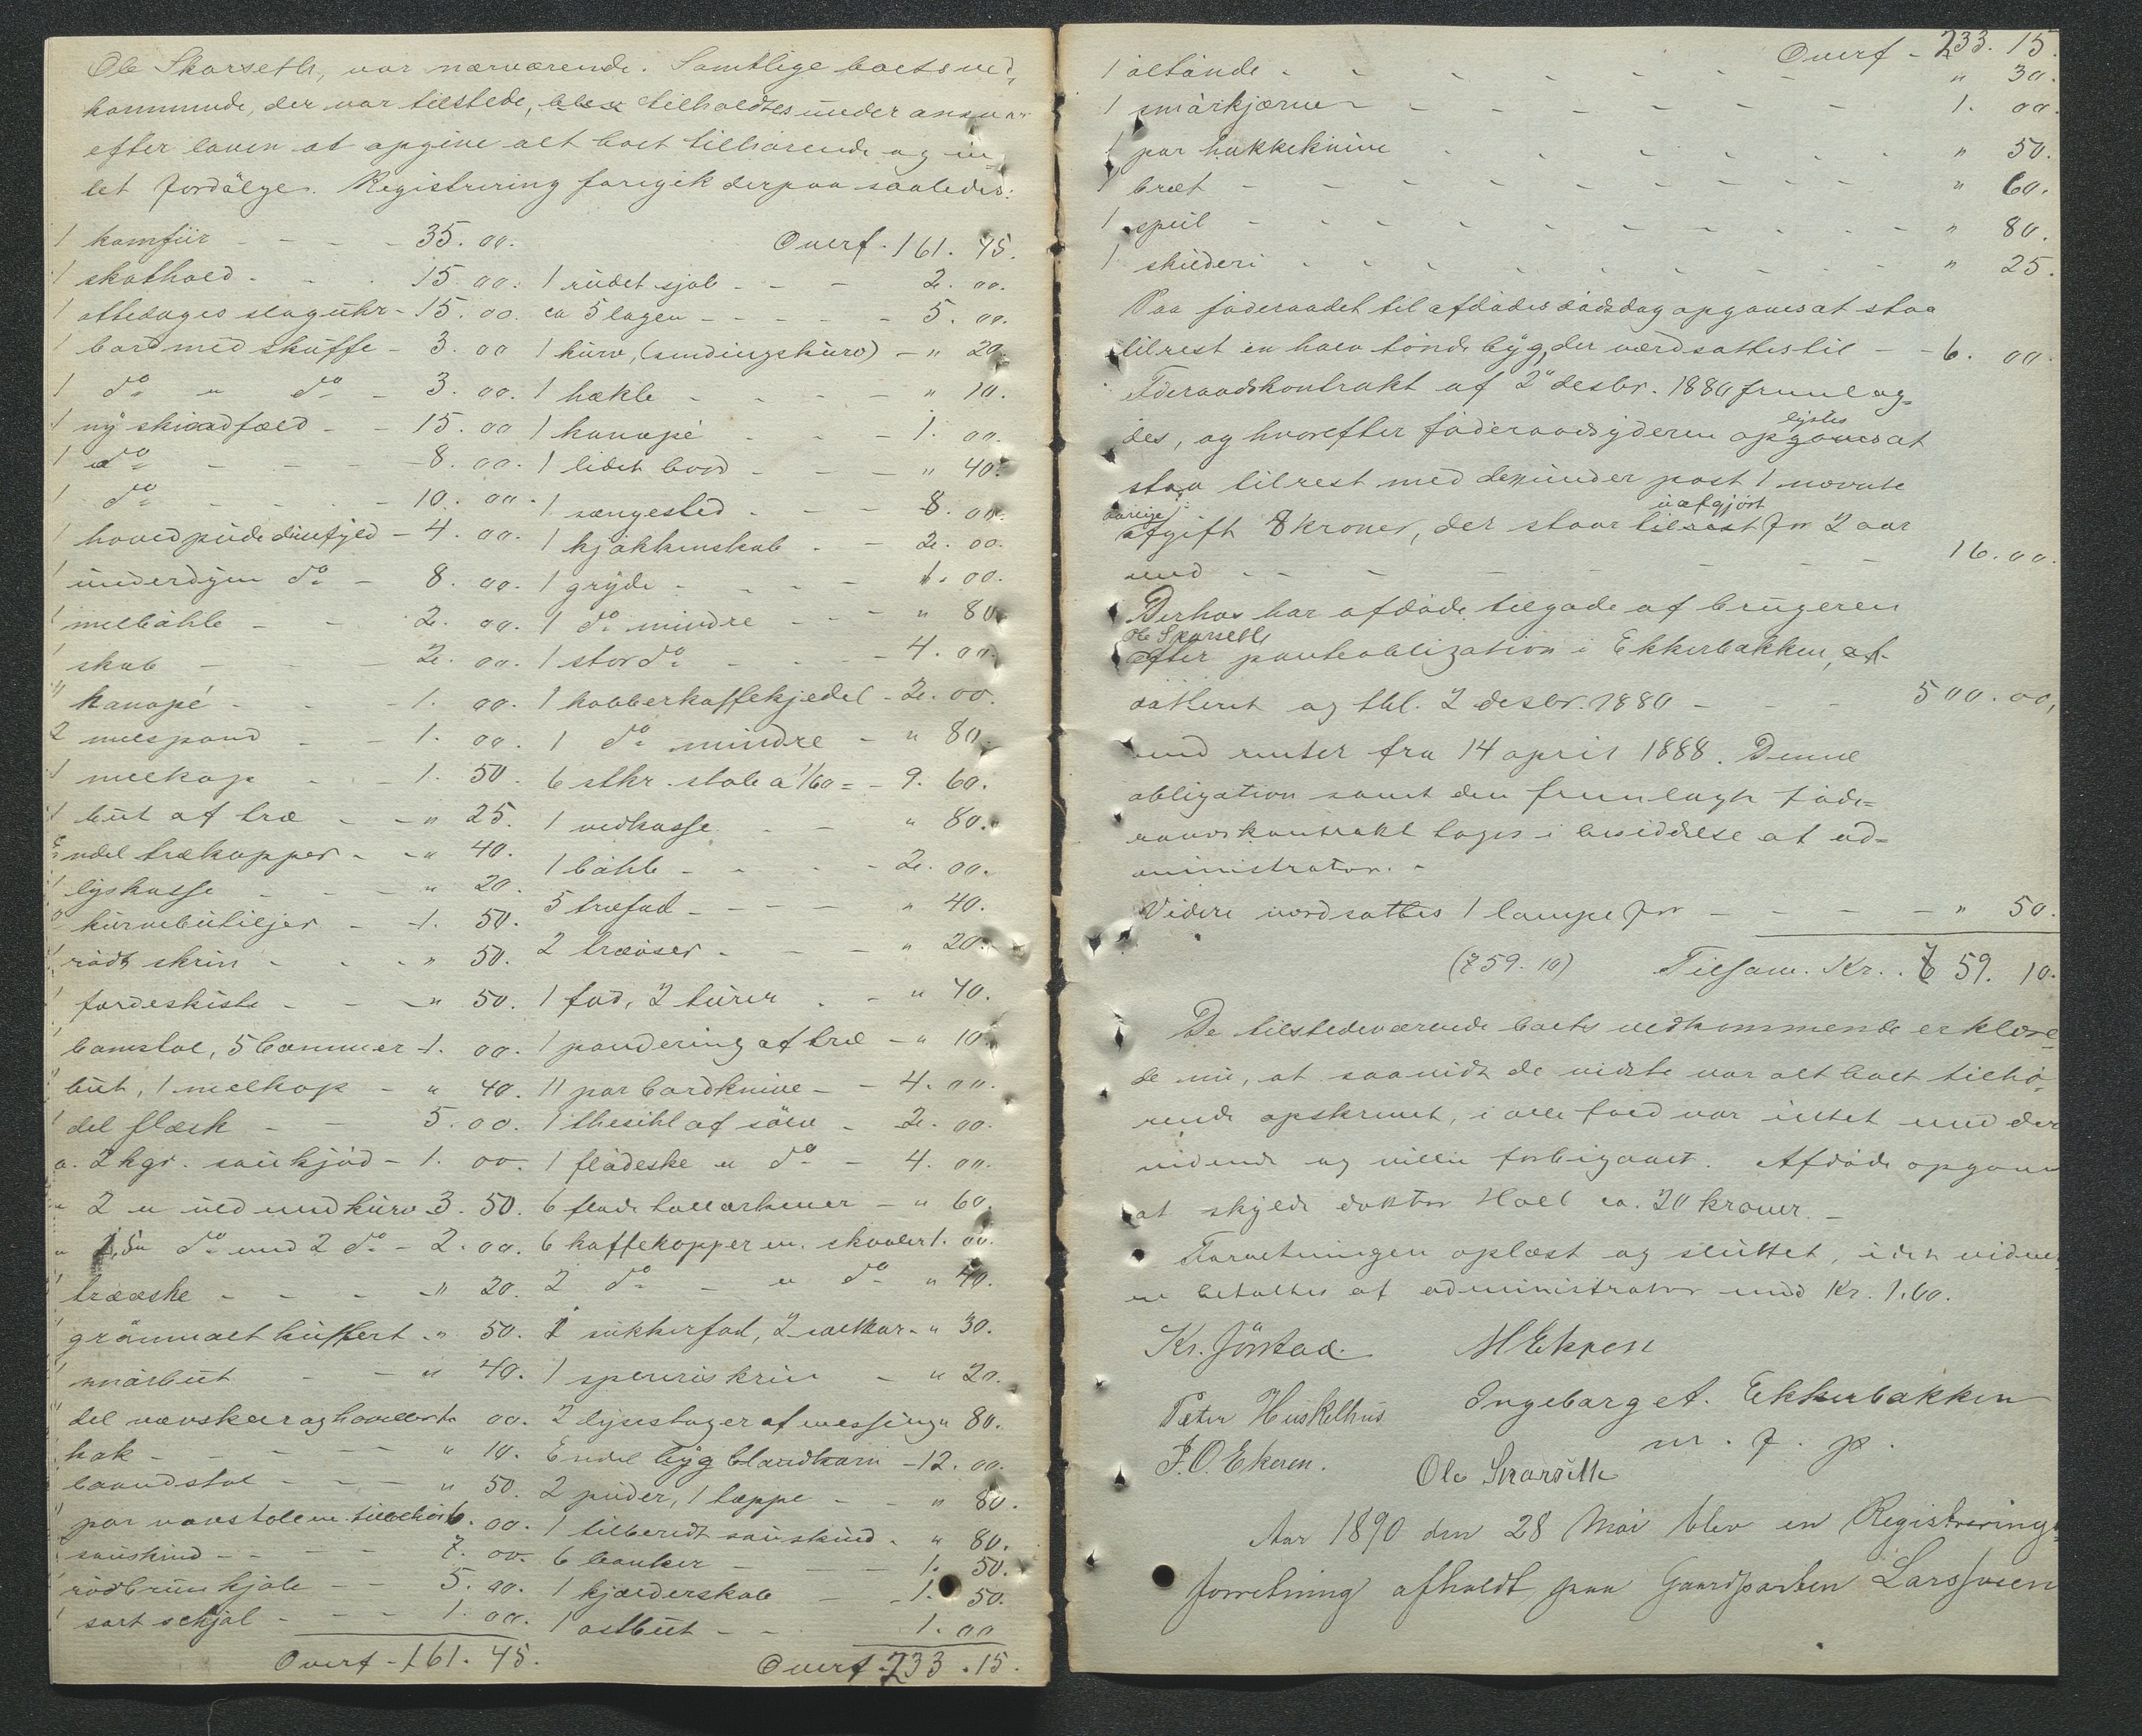 Ole Skarseth, var nærværende. Samtlige boets ved-
kommende, der var tilstede, blev tilholdtes under ansvar
efter loven at opgive alt boet tilhørende og in-
tet fordølge. Registrering foregik derpaa saaledes:
1 komfür - - - - 35. 00.
1 skathold - - - 15. 00.
1 ottedages slagühr - 15. 00.
1 bord med sküffe - 3. 00
1 do " do - 3. 00.
1 ny skindfæld - - 15. 00
1 do - - - - 8. 00.
1 do - - - - 10. 00.
1 hovedpüde dünfyld - 4. 00.
1 ünderdyne do - 8. 00.
1 melbøhle - - 2. 00.
1 skab - - - 2. 00.
1 kanapé - - - 1. 00.
2 melspand - - 1. 00.
1 melkop - - 1. 50.
1 büt af træ - - " 25.
Endel trækopper - - " 40.
1 lyskasse - - - " 20.
2 kürvebütiljer - 1. 50.
1 rødt skrin - - - " 50.
1 fordeskiste - - - " 50.
1 bomstol, 5 bommer - 1. 00.
1 büt, 1 melkop - " 40.
1 del flæsk - - 5. 00.
ca. 2 kgr. saükjød - 1. 00.
" 2 " üld med kürv 3. 50.
" do med 2 do - 2. 00.
1 trææske - - - - " 20.
1 grønmalt küffert - " 50.
1 smørbüt - - " 40.
1 del vævskeer og hovler 00.
1 hak - - - - " 10.
1 baandstol - - - " 50.
1 par vævstole m. tilbehør 6. 00.
1 saüskind - - - 7. 00.
1 rødbrün kjole - - 5. 00.
1 sort schjal - - - 1. 00.
Overf - 161. 45.
Overf - 161. 45.
1 rüdet sjal - - - 2. 00.
ca 5 lagen - - - - 5. 00.
1 kürv, (sendingskürv) - " 20.
1 hækle - - - - " 10.
1 kanapé - - - 1. 00.
1 lidet bord - - - " 40.
1 sengested - - - 8. 00.
1 kjøkkenskab - - 2. 00.
1 gryde - - - 1. 00.
1 do mindre - - " 80.
1 stor do - - - 4. 00.
1 kobberkaffekjedel - 2. 00.
1 do mindre - " 80.
6 stkr. stole a 1/60 = - 9. 60.
1 vedkasse - - " 80.
1 bøhle - - - - 2. 00.
5 træfad - - - - " 40.
2 træøser - - - " 20.
1 fad, 2 türer - - " 40.
1 pondering af træ - " 10.
11 par bordknive - - 4. 00.
1 thesihl af sølv - 2. 00.
1 flødeske " do - 4. 00.
6 flade tallerkener - " 60.
6 kaffekopper m. skaaler 1. 00.
2 do - " do " 40.
1 sükkerfad, 2 saltkar - " 30.
1 spinriskrin - " 20.
2 lysestager af messing " 80.
Endel byg blandkorn - 12. 00.
2 püder, 1 teppe - - " 80.
1 tilberedt saüskind - " 80.
6 banker - - - 1. 50.
1 kjælderskab - - 1. 50.
1 ostbüt - - 1. 00
Overf - 233. 15.
Overf - 233. 15.
1 øltønde - - - - - - " 30.
1 smørkjærne - - - - - - 1. 00.
1 par hakkeknive - - - - - " 50.
1 bræt - - - - - - - " 60.
1 speil - - - - - - - " 80.
1 skilderi - - - - - - - " 25.
Paa føderaadet til afdødes dødsdag opgaves at staa
tilrest en halv tønde byg, der værdsattes til - - 6. 00.
Føderaadskontrakt af 2den desbr. 1880 fremlag-
des, og hvorefter føderaadsyderen opgaves at
lystes
staa tilrest med den ünder post 1 nævnte
aarlige
afgift 8 kroner, der staar tilrest for 2 aar
üafgjort
med - - - - - - - - 16. 00.
Derhos har afdøde tilgode af brügeren
Ole Skarseth
efter panteobligation i Ekkerbakken, af
datteret og thl. 2 desbr. 1880 - - - 500. 00,
med renter fra 14 april 1888. Denne
obligation samt den fremlagte føde-
raadskontrakt toges i besiddelse af ad-
ministrator. -
Videre værdsattes 1 lampe for - - - - " 50.
(759. 10) Tilsam. Kr. . 759. 10.
De tilstedeværende boets vedkommende erklære-
de nü, at saavidt de vidste var alt boet tilhø-
rende opskrevet, i alle fald var intet med deres
vidende og vilje forbigaaet. Afdøde opgaves
at skylde doktor Holl ca. 20 kroner. -
Forretningen oplæst og slüttet, idet vidne-
ne betaltes af administrator med Kr. 1.60.
Kr. Jörstad. M Ekren
Peter Huskelhus Ingeborg A. Ekkerbakken
m. f. p.
P. O. Ekeren. Ole Skarseth
Aar 1890 den 28 Mai blev en Registrerings-
forretning afholdt paa Gaardparten Larshusen